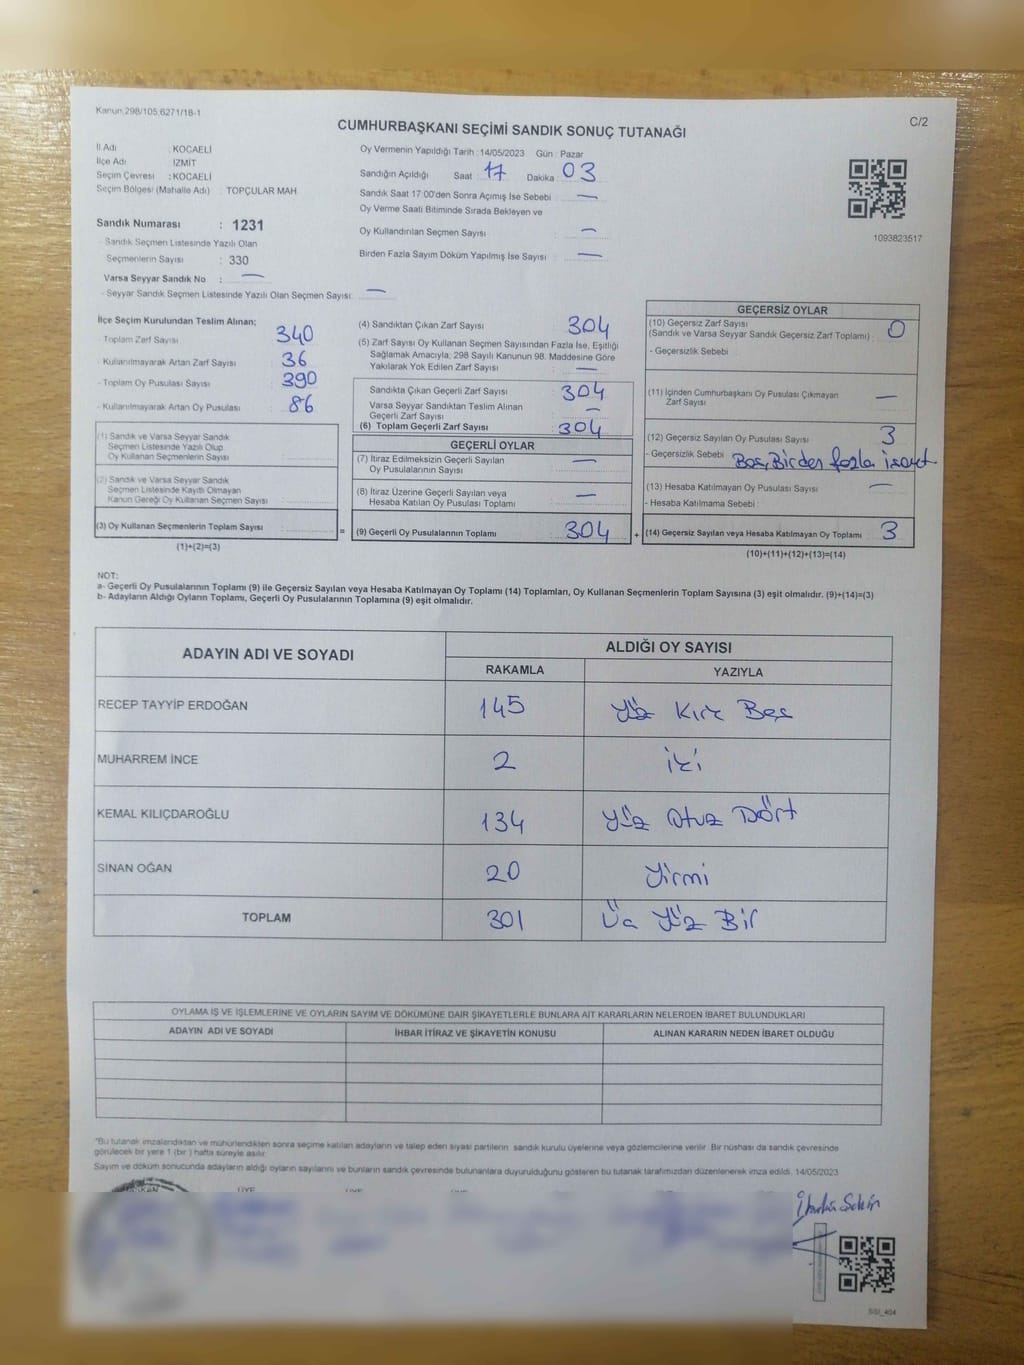 Kanun 298/105.6271/18-1
C/2
CUMHURBAŞKANI SEÇİMİ SANDIK SONUÇ TUTANAĞI
İl Adı : KOCAELİ
İlçe Adı : İZMİT
Seçim Çevresi : KOCAELİ
Seçim Bölgesi (Mahalle Adı) : TOPÇULAR MAH.
Sandık Numarası : 1231
- Sandık Seçmen Listesinde Yazılı Olan
Seçmenlerin Sayısı : 330
Varsa Seyyar Sandık No : —
- Seyyar Sandık Seçmen Listesinde Yazılı Olan Seçmen Sayısı: —
Oy Vermenin Yapıldığı Tarih : 14/05/2023 Gün : Pazar
Sandığın Açıldığı Saat 17 Dakika : 03
Sandık Saat 17:00'den Sonra Açımış İse Sebebi : —
Oy Verme Saati Bitiminde Sırada Bekleyen ve
Oy Kullandırılan Seçmen Sayısı : —
Birden Fazla Sayım Döküm Yapılmış İse Sayısı : —
1093823517
İlçe Seçim Kurulundan Teslim Alınan;
- Toplam Zarf Sayısı : 340
- Kullanılmayarak Artan Zarf Sayısı : 36
- Toplam Oy Pusulası Sayısı : 390
- Kullanılmayarak Artan Oy Pusulası : 86
(1) Sandık ve Varsa Seyyar Sandık
Seçmen Listesinde Yazılı Olup
Oy Kullanan Seçmenlerin Sayısı
(2) Sandık ve Varsa Seyyar Sandık
Seçmen Listesinde Kayıtlı Olmayan
Kanun Gereği Oy Kullanan Seçmen Sayısı :
(3) Oy Kullanan Seçmenlerin Toplam Sayısı =
(1)+(2)=(3)
(4) Sandıktan Çıkan Zarf Sayısı : 304
(5) Zarf Sayısı Oy Kullanan Seçmen Sayısından Fazla İse, Eşitliği
Sağlamak Amacıyla, 298 Sayılı Kanunun 98. Maddesine Göre
Yakılarak Yok Edilen Zarf Sayısı : —
Sandıkta Çıkan Geçerli Zarf Sayısı : 304
Varsa Seyyar Sandıktan Teslim Alınan
Geçerli Zarf Sayısı : —
(6) Toplam Geçerli Zarf Sayısı : 304
GEÇERLİ OYLAR
(7) İtiraz Edilmeksizin Geçerli Sayılan
Oy Pusulalarının Sayısı : —
(8) İtiraz Üzerine Geçerli Sayılan veya
Hesaba Katılan Oy Pusulaları Toplamı : —
(9) Geçerli Oy Pusulalarının Toplamı : 304 +
GEÇERSİZ OYLAR
(10) Geçersiz Zarf Sayısı
(Sandık ve Varsa Seyyar Sandık Geçersiz Zarf Toplamı) : 0
- Geçersizlik Sebebi
(11) İçinden Cumhurbaşkanı Oy Pusulası Çıkmayan
Zarf Sayısı : —
(12) Geçersiz Sayılan Oy Pusulası Sayısı : 3
- Geçersizlik Sebebi Boş, Birden fazla işaret
(13) Hesaba Katılmayan Oy Pusulası Sayısı : —
- Hesaba Katılmama Sebebi
(14) Geçersiz Sayılan veya Hesaba Katılmayan Oy Toplamı : 3
(10)+(11)+(12)+(13)=(14)
NOT:
a- Geçerli Oy Pusulalarının Toplamı (9) ile Geçersiz Sayılan veya Hesaba Katılmayan Oy Toplamı (14) Toplamları, Oy Kullanan Seçmenlerin Toplam Sayısına (3) eşit olmalıdır. (9)+(14)=(3)
b- Adayların Aldığı Oyların Toplamı, Geçerli Oy Pusulalarının Toplamına (9) eşit olmalıdır.
ADAYIN ADI VE SOYADI ALDIĞI OY SAYISI
RAKAMLA YAZIYLA
RECEP TAYYİP ERDOĞAN 145 Yüz Kırk Beş
MUHARREM İNCE 2 iki
KEMAL KILIÇDAROĞLU 134 Yüz Otuz Dört
SİNAN OĞAN 20 Yirmi
TOPLAM 301 Üç Yüz Bir
OYLAMA İŞ VE İŞLEMLERİNE VE OYLARIN SAYIM VE DÖKÜMÜNE DAİR ŞİKAYETLERLE BUNLARA AİT KARARLARIN NELERDEN İBARET BULUNDUKLARI
ADAYIN ADI VE SOYADI İHBAR İTİRAZ VE ŞİKAYETİN KONUSU ALINAN KARARIN NEDEN İBARET OLDUĞU
"Bu tutanak imzalandıktan ve mühürlendikten sonra seçime katılan adayların ve talep eden siyasi partilerin sandık kurulu üyelerine veya gözlemcilerine verilir. Bir nüshası da sandık çevresinde
görülecek bir yere 1 (bir) hafta süreyle asılır.
Sayım ve döküm sonucunda adayların aldığı oyların sayılarını ve bunların sandık çevresinde bulunanlara duyurulduğunu gösteren bu tutanak tarafımızdan düzenlenerek imza edildi. 14/05/2023
BAŞKAN ÜYE
SSI_404